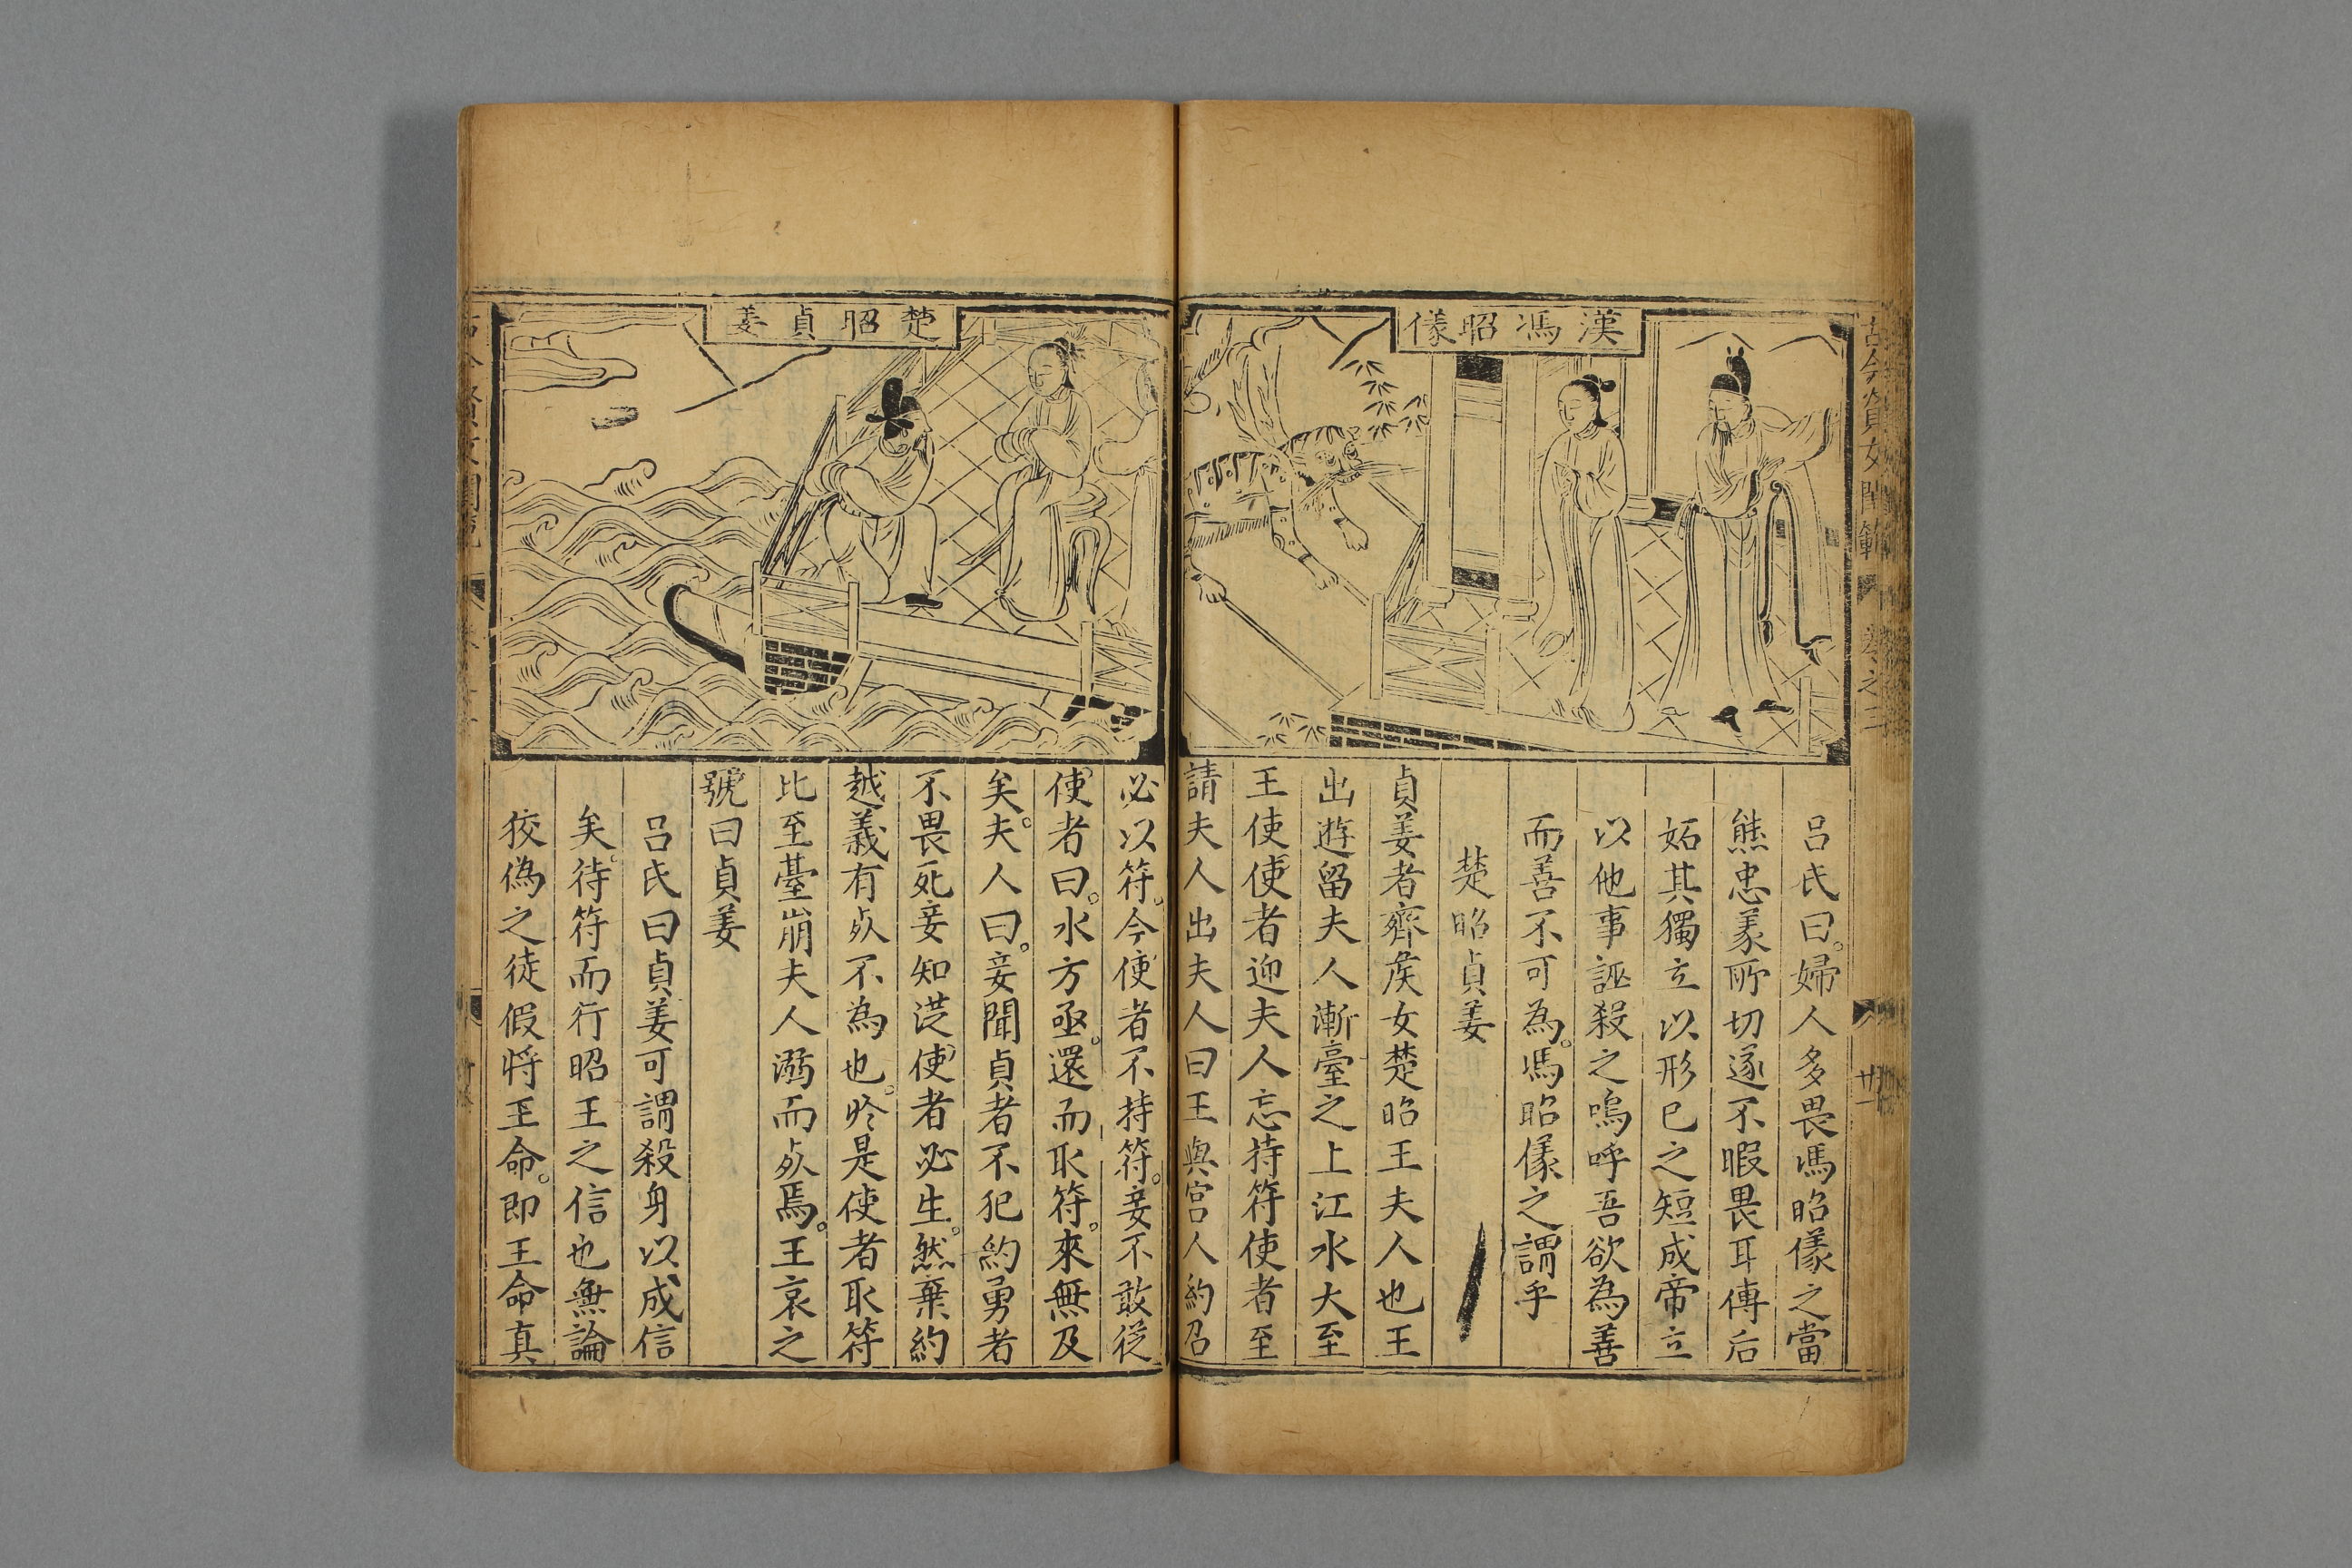 漢馮昭儀
呂氏曰婦人多畏馮昭儀之當
熊忠義所切遂不暇畏耳傳后
妬其獨立以形已之短成帝立
以他事誣殺之嗚呼吾欲為善
而善不可為馮昭儀之謂乎
楚昭貞姜
貞姜者齊矦女楚昭王夫人也王
出遊留夫人漸臺之上江水大至
王使使者迎夫人忘持符使者至
請夫人出夫人曰王與宮人約召
楚昭貞姜
必以符今使者不持符妾不敢從
使者曰水方亟還而取符來無及
矣夫人曰妾聞貞者不犯約勇者
不畏死妾知從使者必生然棄約
越義有死不為也於是使者取符
比至臺崩夫人溺而死焉王哀之
號曰貞姜
呂氏曰貞姜可謂殺身以成信
矣待符而行昭王之信也無論
狡偽之徒假將王命即王命真
古今貞女閨範
卷之二
廿一